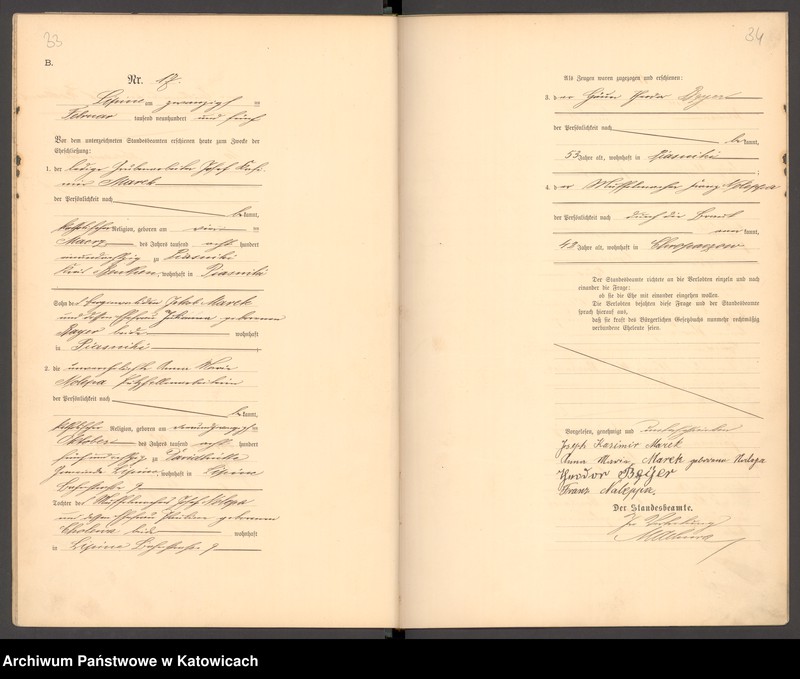 33
B.
Nr. 17.
Lipine am zwanzigst en
Februar tausend neunhundert und fünf
Vor dem unterzeichneten Standesbeamten erschienen heute zum Zwecke der
Eheschließung:
1. der ledige Grubenarbeiter Josef Kasi-
mir Marek
der Persönlichkeit nach
be kannt,
katholischer Religion, geboren am vier en
Maerz des Jahres tausend acht hundert
neunundsiebzig zu Piasniki
Kreis Beuthen, wohnhaft in Piasniki
Sohn des Jakob Marek
und dessen Ehefrau Johanna geborenen
Bayer beide wohnhaft
in Piasniki
2. die unverehelichte Anna Marie
Nolepa
der Persönlichkeit nach
be kannt,
katholischer Religion, geboren am
Oktober des Jahres tausend acht hundert
fünfundachtzig zu
Gemeinde Lipine, wohnhaft in Lipine
Bahnstraße 9
Tochter des Josef Nolepa
und dessen Ehefrau Pauline geborenen
Cholewa beide wohnhaft
in Lipine Bahnstraße 9
34
Als Zeugen waren zugezogen und erschienen:
3. der Häuer Theodor Beyer
der Persönlichkeit nach
be kannt,
53 Jahre alt, wohnhaft in Piasniki
;
4. der Franz Naleppa
der Persönlichkeit nach durch die Braut
aner kannt,
48 Jahre alt, wohnhaft in Chropaczow
Der Standesbeamte richtete an die Verlobten einzeln und nach
einander die Frage:
ob sie die Ehe mit einander eingehen wollen.
Die Verlobten bejahten diese Frage und der Standesbeamte
sprach hierauf aus,
daß sie kraft des Bürgerlichen Gesetzbuchs nunmehr rechtmäßig
verbundene Eheleute seien.
Vorgelesen, genehmigt und unterschrieben
Joseph Kasimir Marek
Anna Maria Marek geborene Nalepa
Theodor Beyer
Franz Naleppa.
Der Standesbeamte.
In Vertretung
Archiwum Państwowe w Katowicach